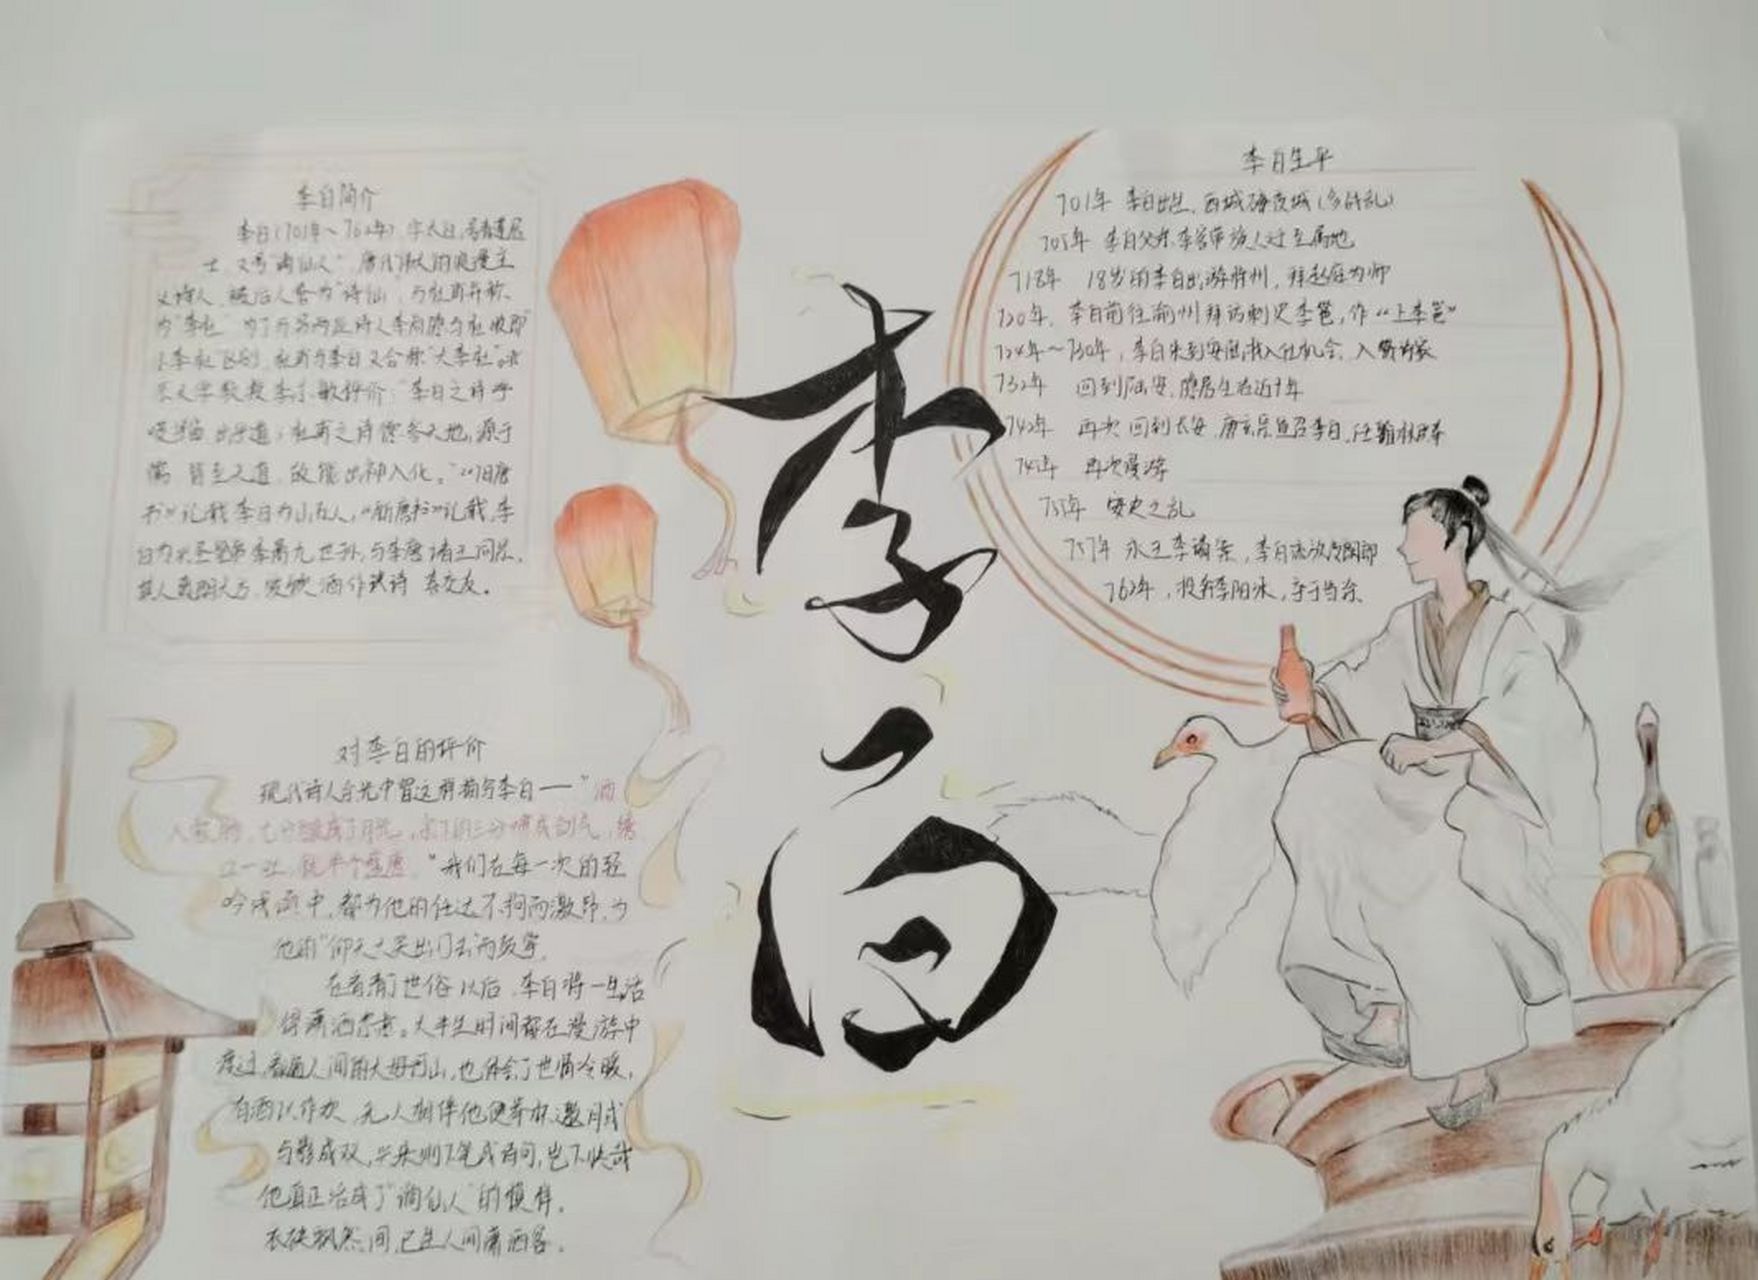 李白简介
李白(701年～762年),字太白,号青莲居
士,又号"谪仙人",唐代伟大的浪漫主
义诗人,被后人誉为"诗仙",与杜甫并称
为"李杜",为了与另两位诗人李商隐与杜牧即
小李杜区别,杜甫与李白又合称"大李杜"。
教授李小敏评价:"李白之诗呼
吸宇宙,出乎道;杜甫之诗德参天地,源于
儒,皆至天道,故能出神入化。"《旧唐
书》记载李白为山东人,《新唐书》记载,李
白为兴圣皇帝李暠九世孙,与李唐诸王同宗。
其人爽朗大方,爱饮酒作诗,喜交友。
对李白的评价
现代诗人余光中曾这样描写李白——"酒
入豪肠,七分酿成了月光,余下的三分啸成剑气,绣
口一吐,就半个盛唐。"我们在每一次的轻
吟诵中,都为他的仕途不拘而激昂,为
他的"仰天大笑出门去"而鼓
在看清世俗以后,李白将一生活
得潇洒恣意。大半生时间都在漫游中
度过,看遍人间的大好河山,也体会了世间冷暖,
有酒以作欢,无人相伴他便举杯邀月或
与影成双,兴来则下笔成诗句,岂不快哉
他真正活成了"谪仙人"的模样。
衣袂飘然间,已是人间潇洒客。
李白
李白生平
701年 李白出生,西域碎叶城
705年 李白父亲李客带族人迁至属地
718年 18岁的李白出游梓州,拜赵蕤为师
720年,李白前往渝州拜访刺史李邕,作《上李邕》
724年～730年,李白来到安陆,找入仕机会,入赘许家
732年 回到安,隐居生活近十年
742年 再次回到长安,唐玄宗宣召李白,任翰林
再次漫游
755年 安史之乱
757年 永王李璘案,李白流放夜郎
762年,投奔李阳冰,卒于当涂